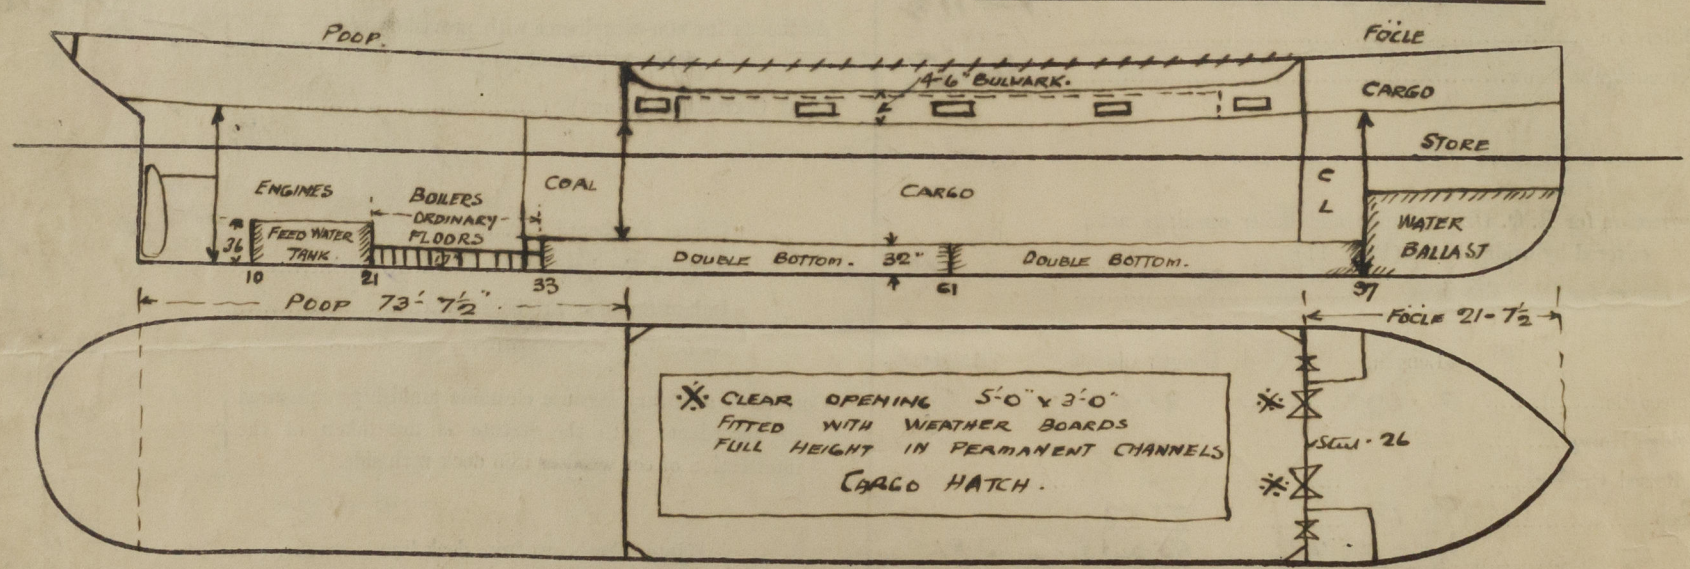 POOP.
FÖCLE
4-6" BULWARK.
CARGO
STORE
ENGINES
BOILERS
ORDINARY
FLOORS
COAL
CARGO
C
L
WATER
BALLAST
36
FEED WATER
TANK.
DOUBLE BOTTOM.
32"
DOUBLE BOTTOM.
10
21
33
61
97
POOP 73'- 7½"
FÖCLE 21-7½
※ CLEAR OPENING 5'-0" x 3'-0"
FITTED WITH WEATHER BOARDS
FULL HEIGHT IN PERMANENT CHANNELS
CARGO HATCH.
※
Steel · 26
※